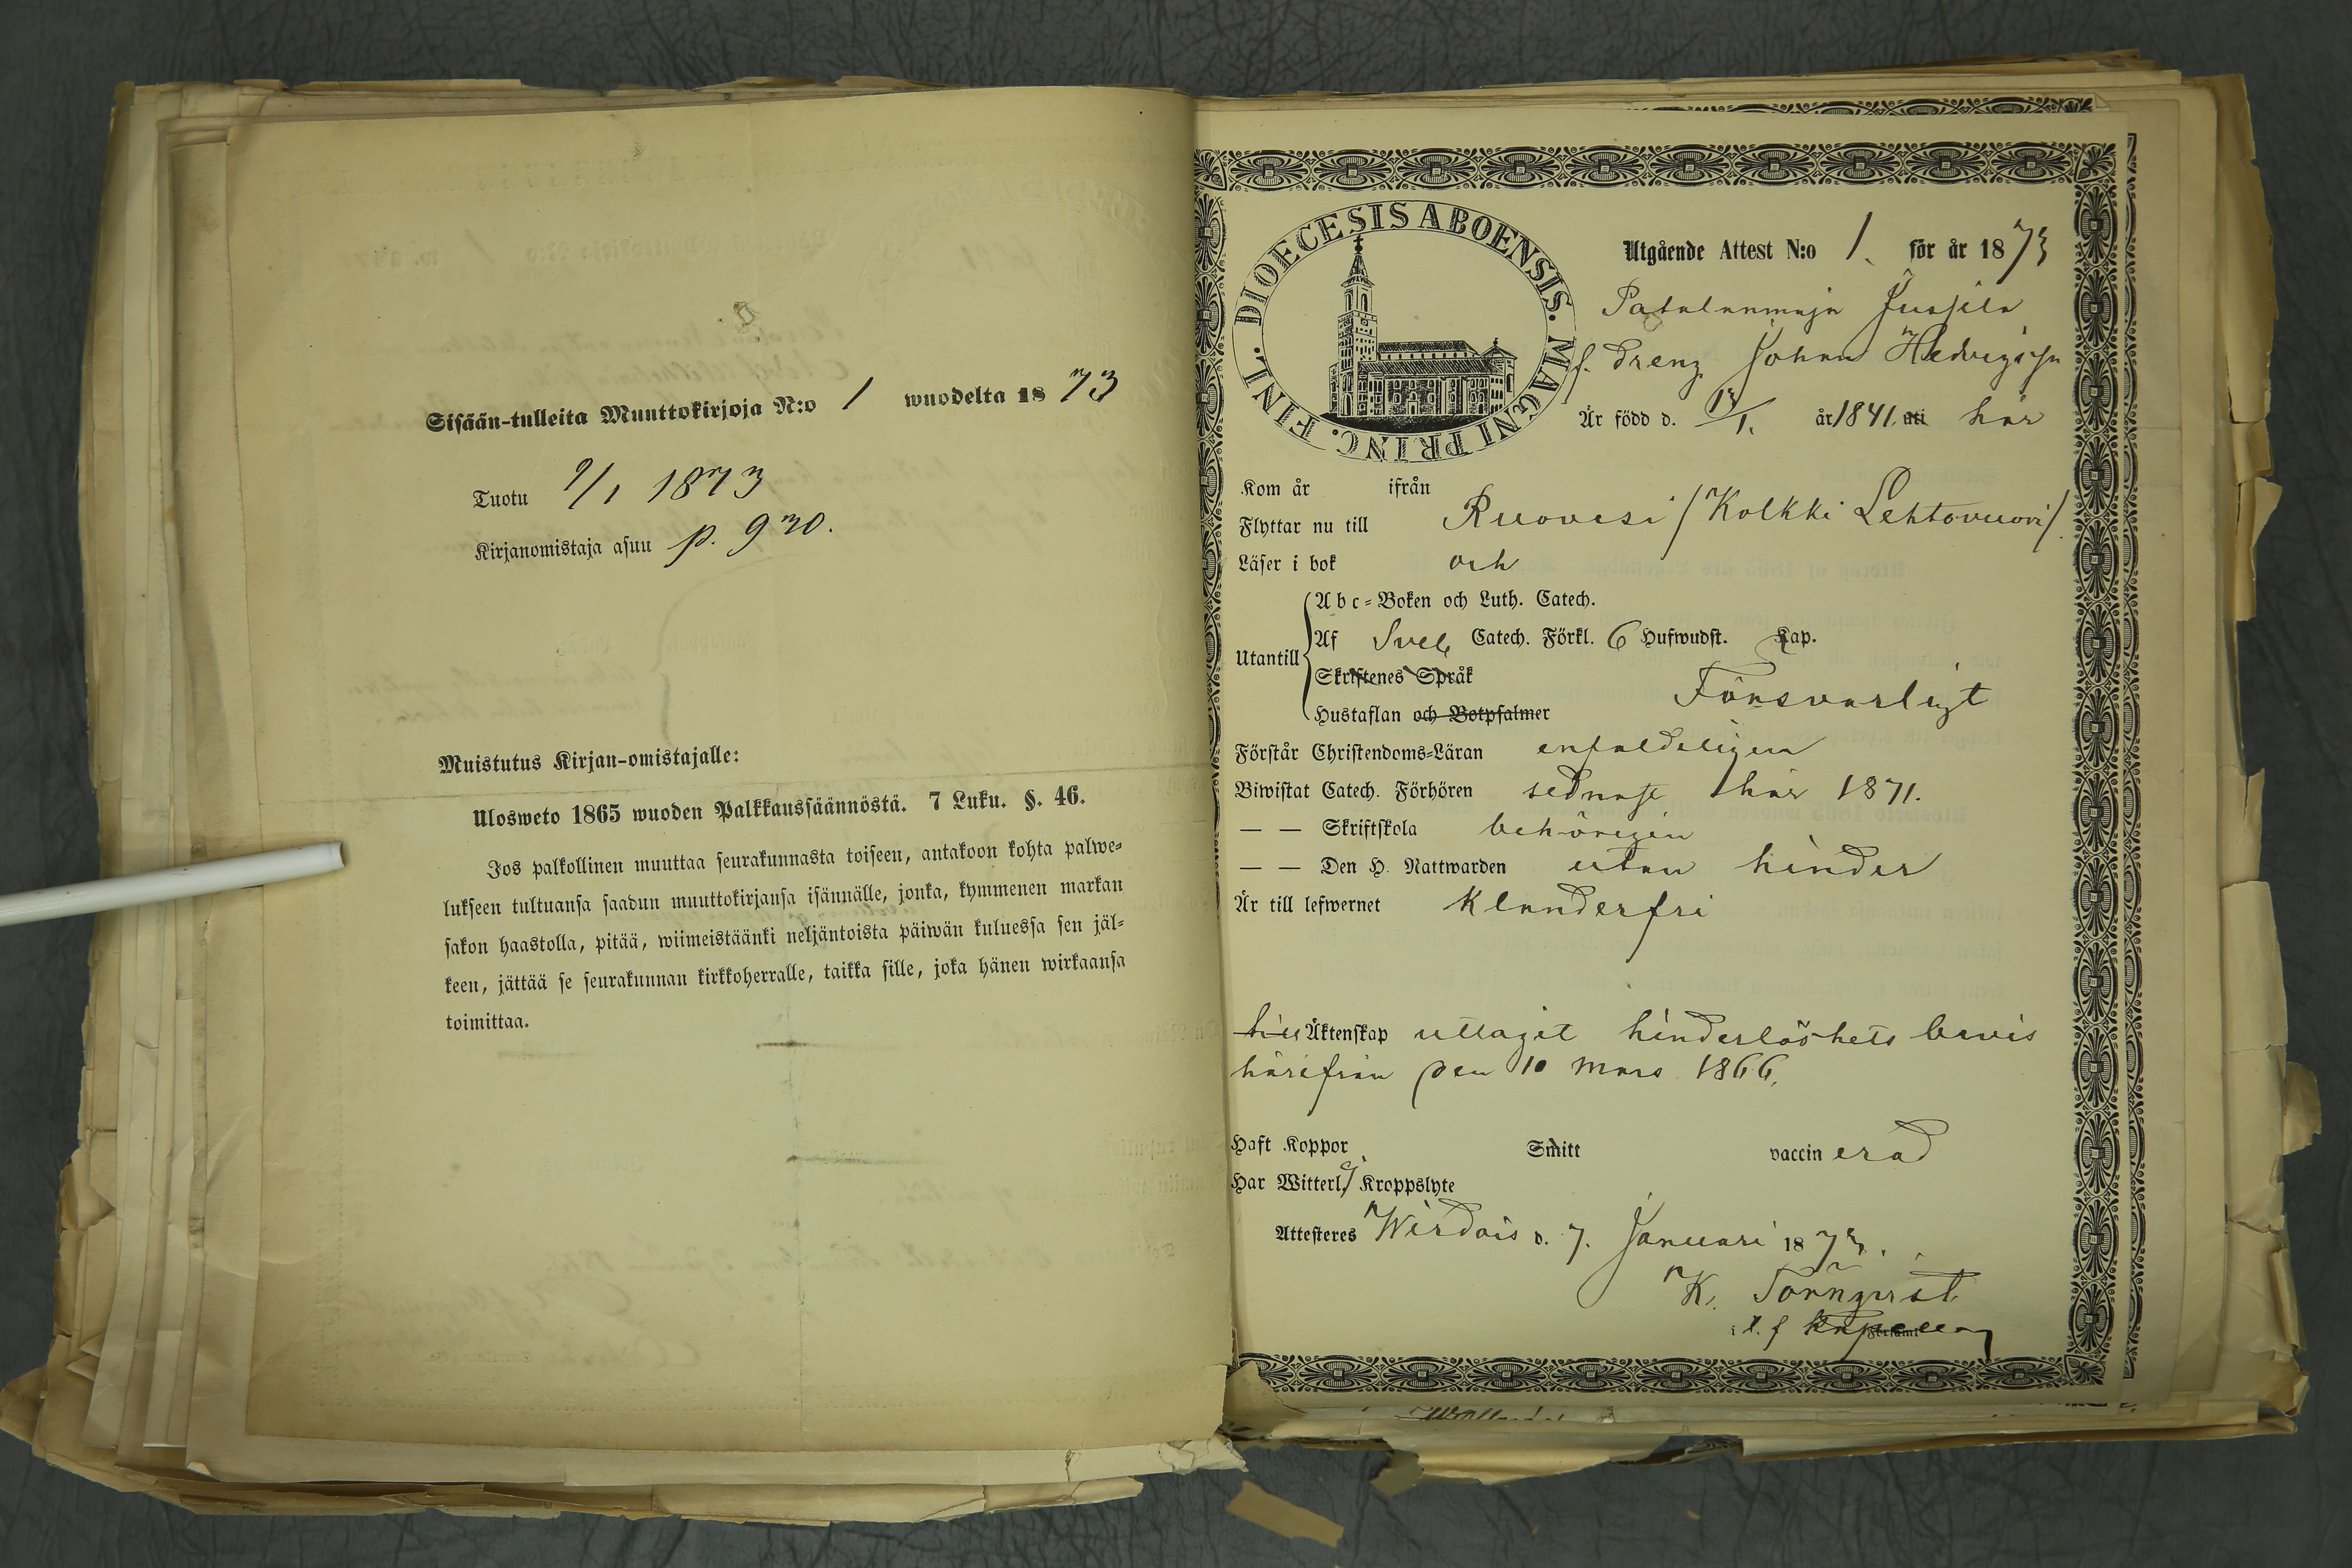 Sisään-tulleita Muuttokirjoja N:o 1 wuodelta 1873
Tuotu 9/1 1873
Kirjanomistaja asuu p. 930.
Muistutus Kirjan-omistajalle:
Ulosweto 1865 wuoden Palkkaussäännöstä. 7 Luku. §. 46.
Jos palkollinen muuttaa seurakunnasta toiseen, antakoon kohta palwe-
lukseen tultuansa saadun muuttokirjansa isännälle, jonka, kymmenen markan
sakon haastolla, pitää, wiimeistäänki neljäntoista päiwän kuluessa sen jäl-
keen, jättää se seurakunnan kirkkoherralle, taikka sille, joka hänen wirkaansa
toimittaa.
DIOECESIS ABOENSIS. MAGNI PRINC. FINL.
Utgående Attest N:o 1. för år 1873
Jussila
f. Dreng Johan Hedvigsson
Är född d. 13/1. år 1841. uti här
Kom år ifrån
Flyttar nu till Ruovesi /Kolkki Lehtovuori/.
Läser i bok och
Utantill
Abc-Boken och Luth. Catech.
Af Sveb Catech. Förkl. 6 Hufwudst. Kap.
Skriftenes Språk
Hustaflan och Botpsalmer
Försvarligt
Förstår Christendoms-Läran enfaldeligen
Biwistat Catech. Förhören sednast här 1871.
— — Skriftskola behörigen
— — Den H. Nattwarden utan hinder
Är till lefwernet klanderfri
Äktenskap uttagit hinderlöshets bevis
härifrån den 10 Mars 1866.
Haft Koppor Smitt vaccinerad
Har Witterl. ej Kroppslyte
Attesteres Wirdois d. 7. Januari 1873.
K. Törnqvist